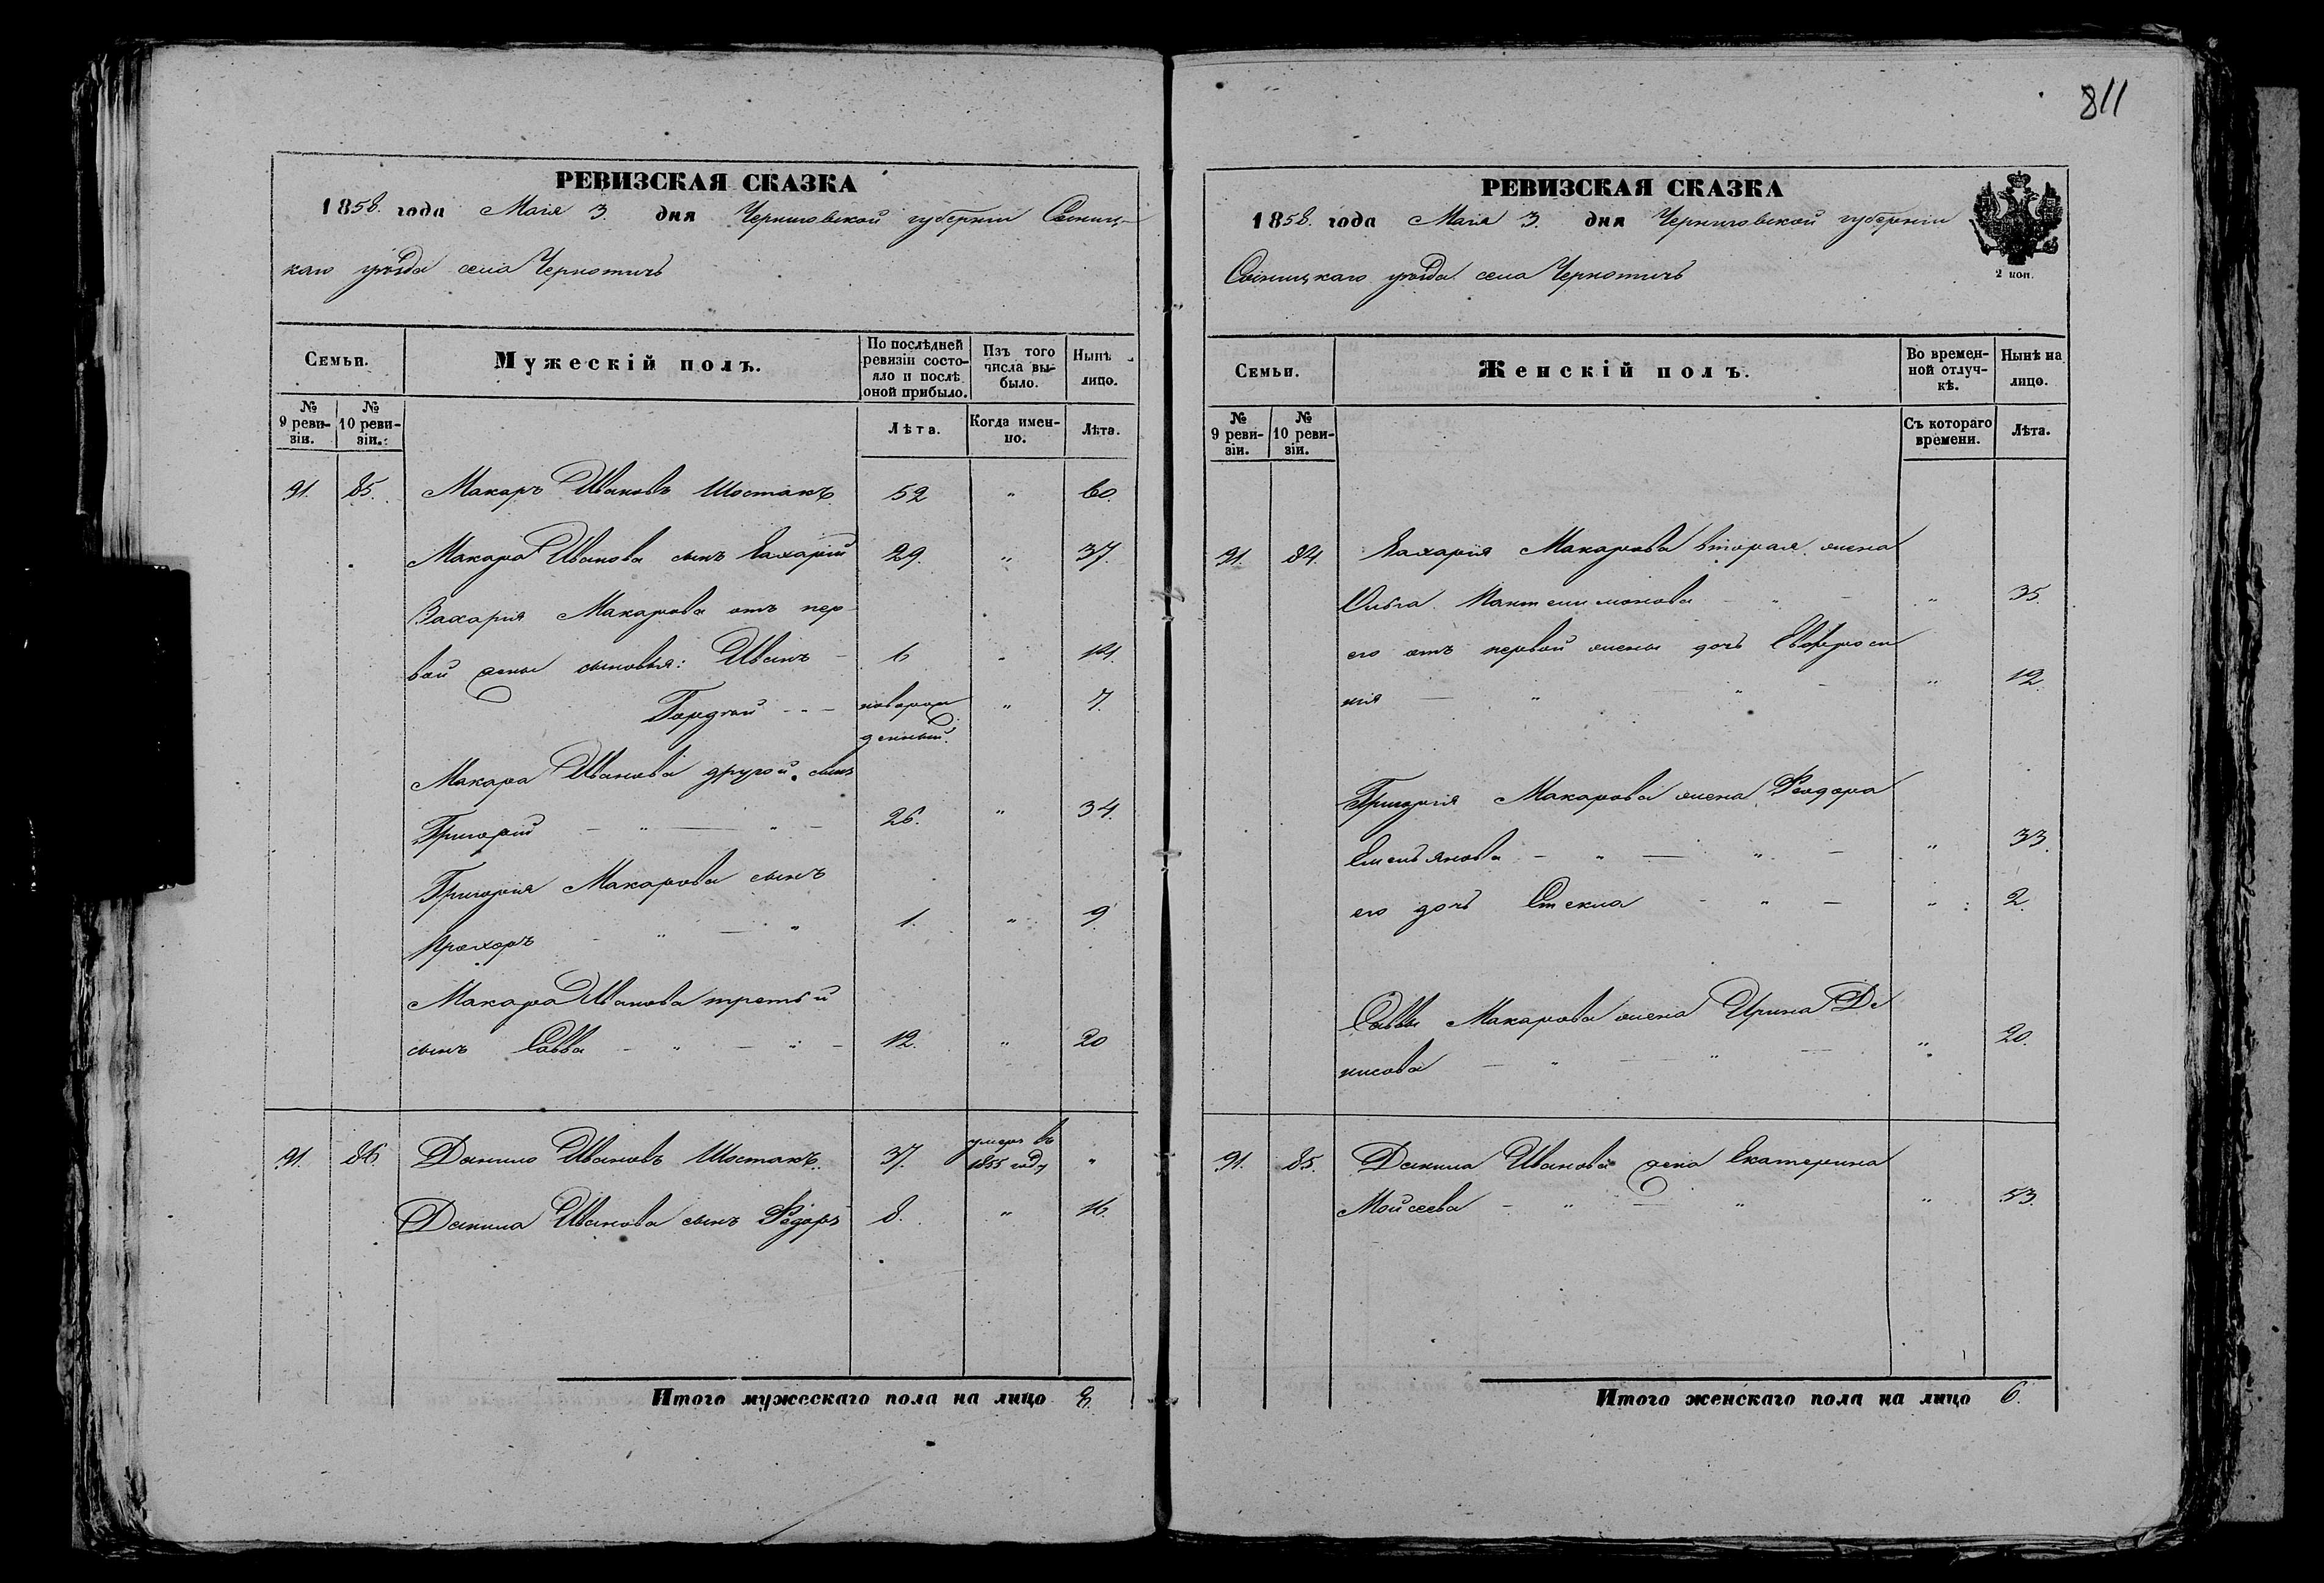 811
РЕВИЗСКАЯ СКАЗКА
1858. года Маія 3. дня Черниговской губерніи Сосниц-
каго уѣзда села Чернотичъ
Семьи.
Мужескій полъ.
По послѣдней ревизіи состо-
яло и послѣ оной прибыло.
Изъ того числа вы-
было.
Нынѣ лицо.
№ 9 реви-
зіи.
№ 10 реви-
зіи.
Лѣта.
Когда имен-
но.
Лѣта.
91. 85. Макаръ Ивановъ Шостакъ. 52 " 60.
Макара Иванова сынъ Захарій 29. " 37.
Захарія Макарова отъ пер-
вой жены сыновья: Иванъ - 6 " 14.
Гордѣй - - новорож " 7.
денный.
Макара Иванова другой сынъ
Григорій - " - " - 26. " 34.
Григорія Макарова сынъ
Прохоръ - " - " 1. " 9
Макара Иванова третьй
сынъ Савва - " - " - 12. " 20
91. 86. Данило Ивановъ Шостакъ. 37. умеръ въ
1855 году "
Данила Иванова сынъ Ѳедоръ 8. " 16.
Итого мужескаго пола на лицо 8.
РЕВИЗСКАЯ СКАЗКА
1858. года Маія 3. дня Черниговской губерніи
Сосницкаго уѣзда села Чернотичъ
2 коп.
Семьи.
Женскій полъ.
Во времен-
ной отлуч-
кѣ.
Нынѣ на лицо.
№ 9 реви-
зіи.
№ 10 реви-
зіи.
Съ котораго времени.
Лѣта.
91. 84. Захарія Макарова вторая жена
Ольга Пантелимонова - " - " 35.
его отъ первой жены дочь Евфроси
нія - " - " - " 12.
Григорія Макарова жена Ѳеодора
Емельянова - " - " - " 33.
его дочь Стекла - " - " 2.
Саввы Макарова жена Ирина Де
нисова - " - " - " 20.
91. 85. Данила Иванова жена Екатерина
Мойсеева - " - " " 53.
Итого женскаго пола на лицо 6.